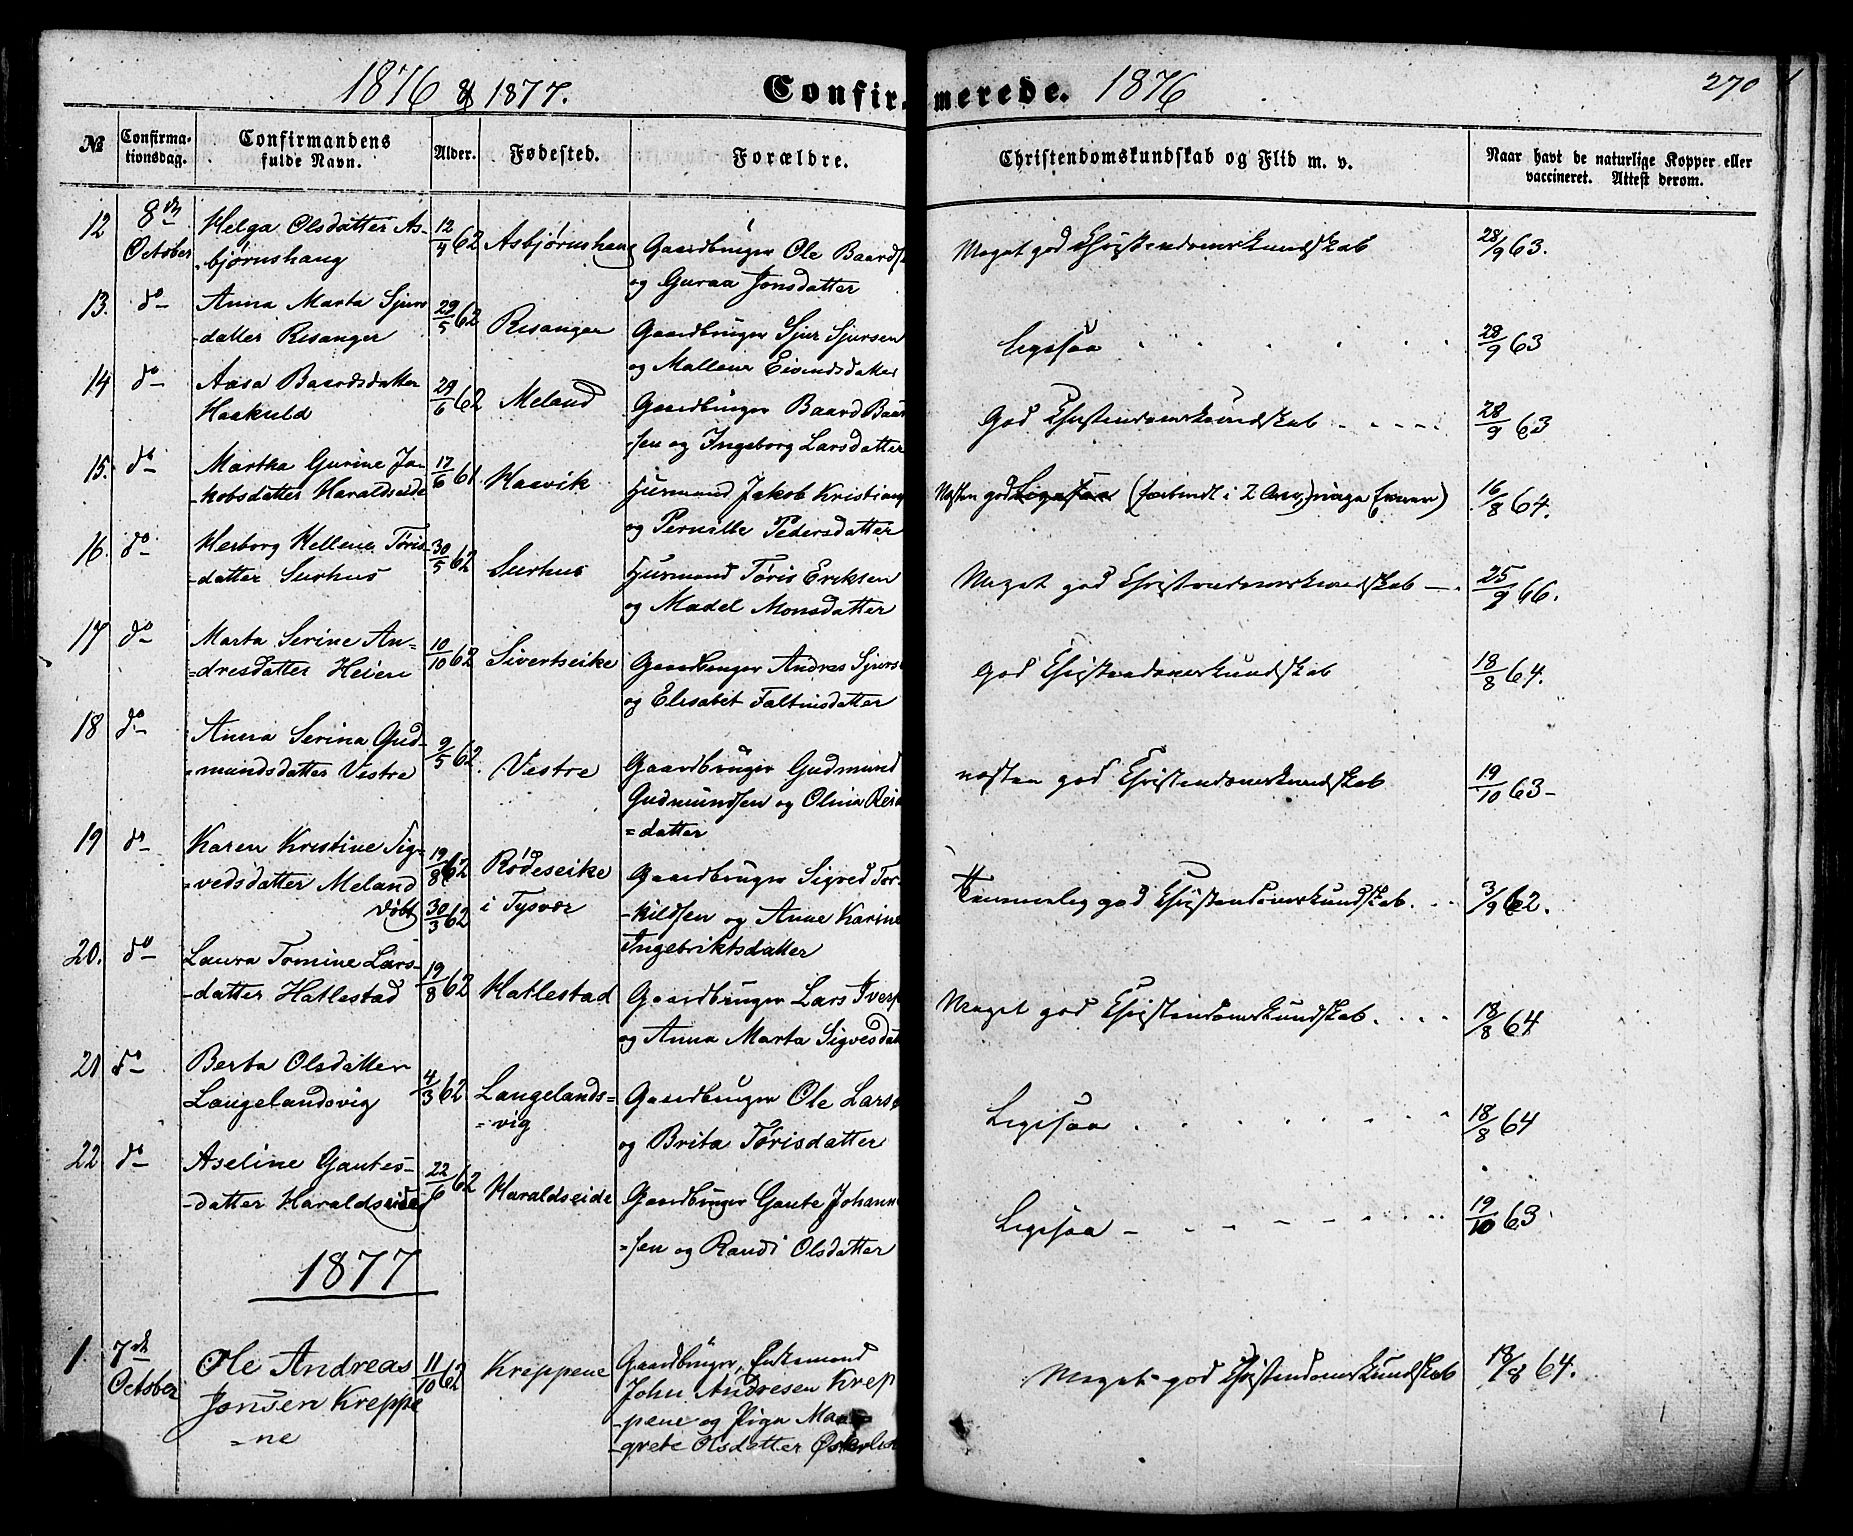 1876 & 1877. Confirmerede. 1876 270
№ Confirmationsdag. Confirmandens fulde Navn. Alder. Fødested. Forældre. Christendomskundskab og Flid m. v. Naar havt de naturlige Kopper eller vaccineret. Attest derom.
12 8de October Helga Olsdatter As- 12/4 62 Asbjørnshaug Gaardbruger Ole Baards Meget god Christendomskundskab 28/9 63.
-bjørnshaug og Guraa Jonsdatter
13. do Anna Marta Sjurs 29/5 62 Risanger Gaardbruger Sjur Sjursen Ligesaa 28/9 63
-datter Risanger og Mallene Eivindsdatter
14 do Aasa Baardsdatter 29/6 62 Meland Gaardbruger Baard Baar God Christendomskundskab 28/9 63
Haakuld -sen og Ingeborg Larsdatter
15. do Martha Gurine Ja- 17/6 61 Haavik Huusmand Jakob Kristians Næsten god Ligesaa (forbindt i 2 Aar, 16/8 64.
-kobsdatter Haraldseide og Pernille Pedersdatter
16. do Herborg Hellene Tøris- 30/5 62 Surhus Huusmand Tøris Eriksen Meget god Christendomskundskab 25/9 66.
-datter Surhus og Madel Monsdatter
17 do Marta Serine An- 10/10 62 Sivertseike Gaardbruger Andres Sjurs God Christendomskundskab 18/8 64.
=dresdatter Heien og Elisabet Faltinsdatter
18 do Anna Serina Gud- 9/5 62. Vestre Gaardbruger Gudmund næsten god Christendomskundskab 19/10 63-
=mundsdatter Vestre Gudmundsen og Olina
=datter
19 do Karen Kristine Sig- 19/8 62 Rødeseike Gaardbruger Sigved Tor- Temmelig god Christendomskundskab. 3/9 62.
=vedsdatter Meland i Tysvær -kildsen og Anne Karine
døbt 30/3 62 Ingebriktsdatter
20. do Laura Tomine Lars- 19/8 62 Hatlestad Gaardbruger Lars Ivers Meget god Christendomskundskab. 18/8 64
-datter Hatlestad og Anna Marta Sigvesdat
21 do Berta Olsdatter 4/3 62. Langelands= Gaardbruger Ole Lars Ligesaa 18/8 64
Langelandsvig =vig og Brita Tørisdatter
22 do Aseline Gautes- 22/6 62 Haraldseide Gaardbruger Gaute Johann Ligesaa 19/10 63
-datter Haraldseide =sen og Randi Olsdatter
1877
1. 7de October Ole Andreas 11/10 62 Kreppene Gaardbruger, Enkemand Meget god Christendomskundskab 18/8 64.
Jonsen Kreppe John Andresen Krep
=ne -pene og Pige Mar
-grete Olsdatter